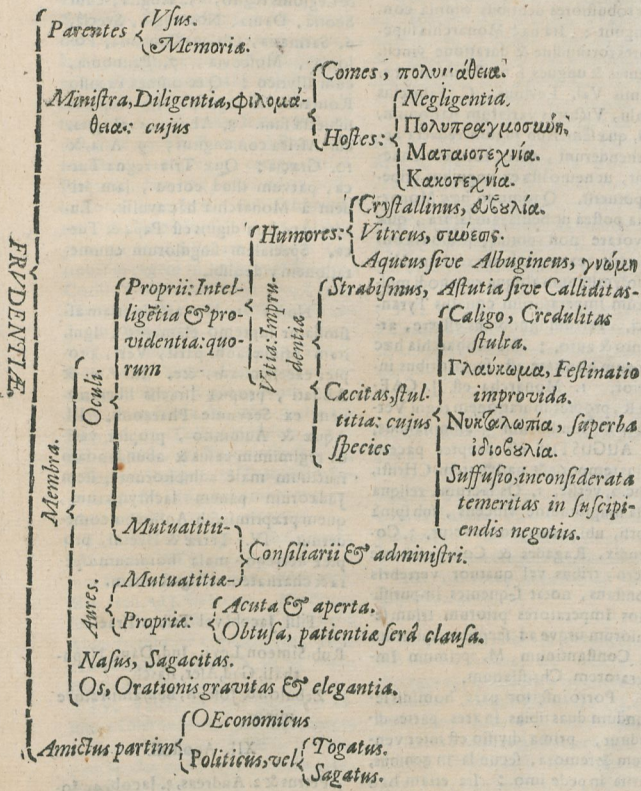 PRVDENTIÆ.
Parentes
Vsus.
Memoriæ.
Ministra, Diligentia, φιλομά-
θεια: cujus
Comes, πολυμάθεια.
Hostes:
Negligentia.
Πολυπραγμοσύνη,
Ματαιοτεχνία.
Κακοτεχνία.
Membra.
Oculi.
Proprii: Intel-
ligētia & pro-
videntia: quo-
rum
Vitia: Impru-
dentiæ
Humores:
Crystallinus, εὐβουλία.
Vitreus, σύνεσις.
Aqueus sive Albugineus, γνώμη
Strabismus, Astutia sive Calliditas-
Cæcitas, stul-
titia: cujus
species
Caligo, Credulitas
stulta.
Γλαύκωμα, Festinatio
improvida.
Νυκταλωπία, superba
ἰδιοβουλία.
Suffusio, inconsiderata
temeritas in suscipi-
endis negotiis.
Mutuatitii-
Consiliarii & administri.
Aures.
Mutuatitiæ-
Propriæ:
Acuta & aperta.
Obtusa, patientiæ serâ clausa.
Nasus, Sagacitas.
Os, Orationis gravitas & elegantia.
Amictus partim
OEconomicus
Politicus, vel
Togatus.
Sagatus.